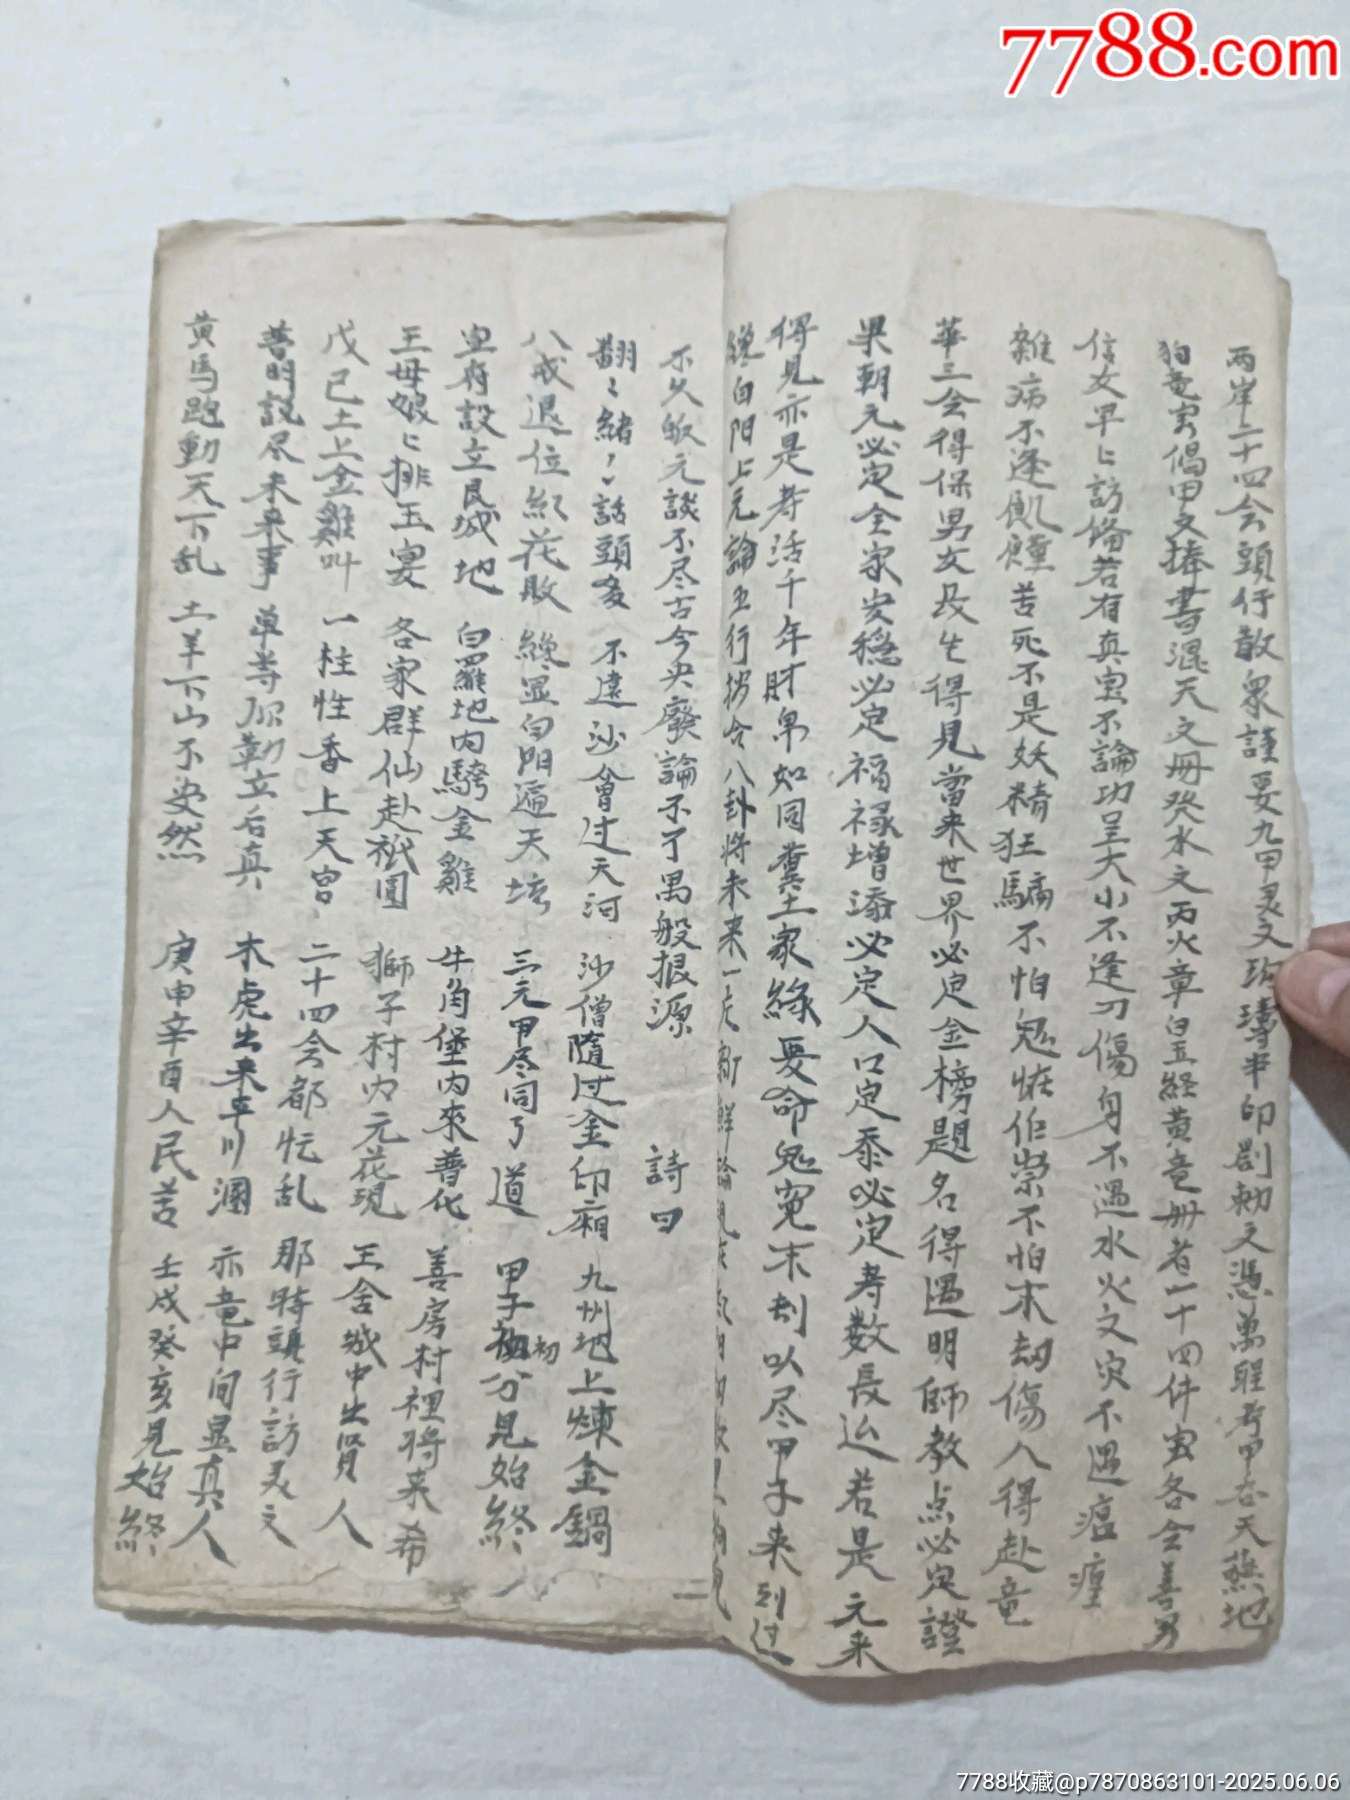 7788.com
两岸二十四会頭行散衆謹要九甲灵文印劄勅文憑萬聖考甲在天燕地
狗竜宝偈甲文捧書混天文冊癸水文丙火章白玉経黄竜冊者二十四件宝各全善男
信女早ヒ訪修若有真宝不論功呈大小不逢刀傷身不遇水火文灾不遇瘟瘴
雜病不逢飢饉苦死不是妖精狂騙不怕鬼怪作祟不怕末劫傷人得赴竜
華三会得保男女長生得見當来世界必定金榜題名得遇明師教点必定證
果朝元必定全家安穩必定福禄增添必定人口定泰必定寿数長远若是元来
得見亦是寿活千年財帛如同糞土家緣憂命鬼寃末刦以尽甲子来到过
纔白阳上元論五行捞合八卦将未来一
不久皈元談不尽古今央廢論不了禺般根源 詩曰
翻〻緒〻話頭多 不遠沙會过天河 沙僧隨过金印廂 九州地上煉金鍋
八戒退位紅花敗 纔显白阳遍天 三元甲尽同了道 甲子初分見始終
宣府設立艮城地 白羅地内騎金雞 牛角堡内來普化 善房村裡将来希
王母娘ヒ排玉宴 各家群仙赴祇圓 獅子村内元花現 王舍城中出賢人
戊己土上金雞叫 一柱性香上天宫 二十四会都忙乱 那時頭行訪灵文
普明説尽未来事 单等弥勒立后真 木虎出来平川澗 亦竜中间显真人
黄馬跑動天下乱 土羊下山不安然 庚申辛酉人民苦 壬戌癸亥見始終
7788收藏@p7870863101-2025.06.06